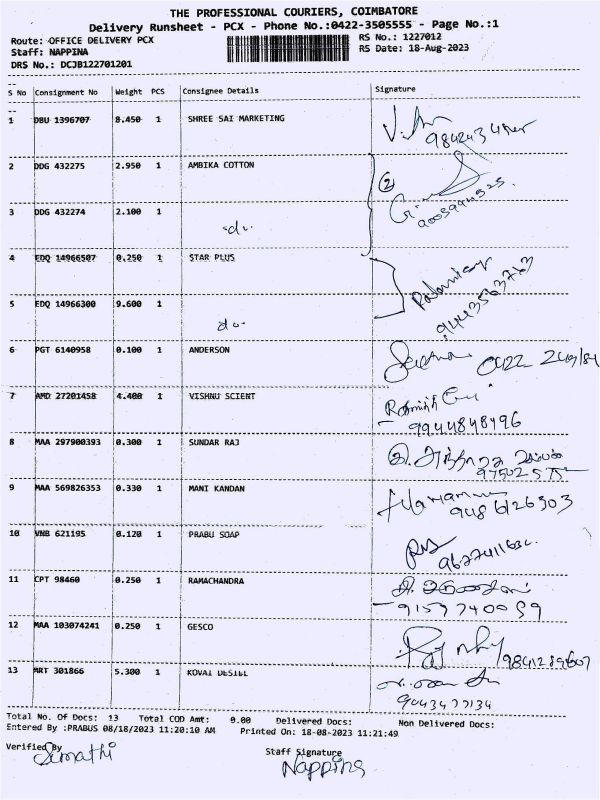 THE PROFESSIONAL COURIERS, COIMBATORE
Delivery Runsheet - PCX - Phone No.:0422-3505555 - Page No.:1
Route: OFFICE DELIVERY PCX RS No.: 1227012
Staff: NAPPINA RS Date: 18-Aug-2023
DRS No.: DCJB122701201
S No Consignment No Weight PCS Consignee Details Signature
1 DBU 1396707 8.450 1 SHREE SAI MARKETING
2 DDG 432275 2.950 1 AMBIKA COTTON 2
3 DDG 432274 2.100 1 do.
4 EDQ 14966507 0.250 1 STAR PLUS
5 EDQ 14966300 9.600 1 do.
9443563763
6 PGT 6140958 0.100 1 ANDERSON 0422
7 AMD 27201458 4.400 1 VISHNU SCIENT
9944848496
8 MAA 297900393 0.300 1 SUNDAR RAJ
9 MAA 569826353 0.330 1 MANI KANDAN
9486126303
10 VNB 621195 0.120 1 PRABU SOAP
11 CPT 98460 0.250 1 RAMACHANDRA
9159740059
12 MAA 103074241 0.250 1 GESCO
13 MRT 301866 5.300 1 KOVAI DESIEL
9043477134
Total No. Of Docs: 13 Total COD Amt: 0.00 Delivered Docs: Non Delivered Docs:
Entered By :PRABUS 08/18/2023 11:20:10 AM Printed On: 18-08-2023 11:21:49
Verified By Staff Signature
Sumathi Nappina